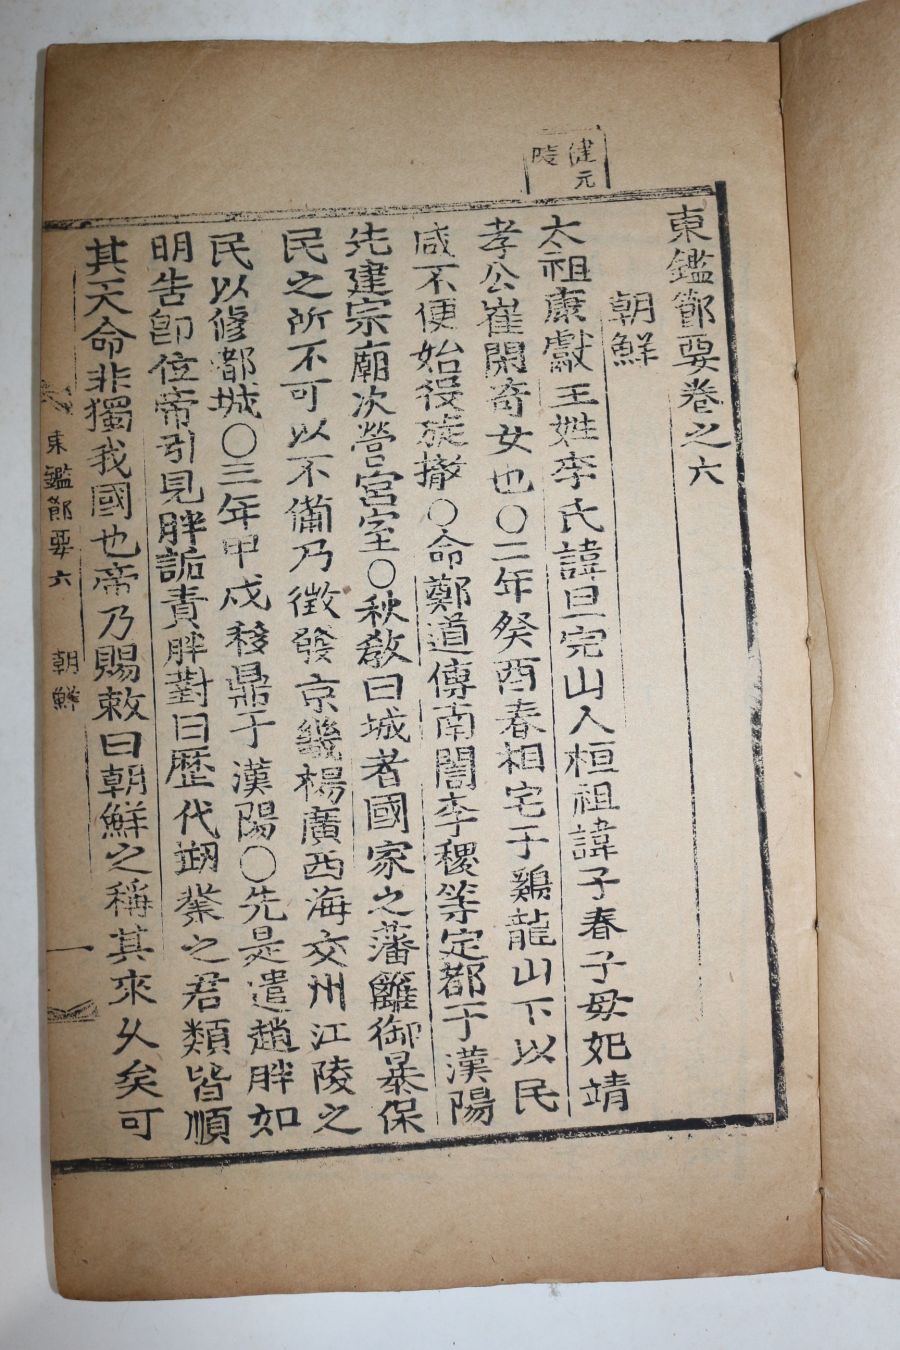 健元
陵
東鑑節要卷之六
朝鮮
太祖康獻王姓李氏諱旦完山人桓祖諱子春子母妃靖
孝公崔閑奇女也○二年癸酉春相宅于鷄龍山下以民
咸不便始役旋撤○命鄭道傳南誾李稷等定都于漢陽
先建宗廟次營宮室○秋敎曰城者國家之藩籬御暴保
民之所不可以不備乃徵發京畿楊廣西海交州江陵之
民以修都城○三年甲戌移鼎于漢陽○先是遣趙胖如
明告卽位帝引見胖詬責胖對曰歷代刱業之君類皆順
其天命非獨我國也帝乃賜敕曰朝鮮之稱其來久矣可
東鑑節要六 朝鮮 一